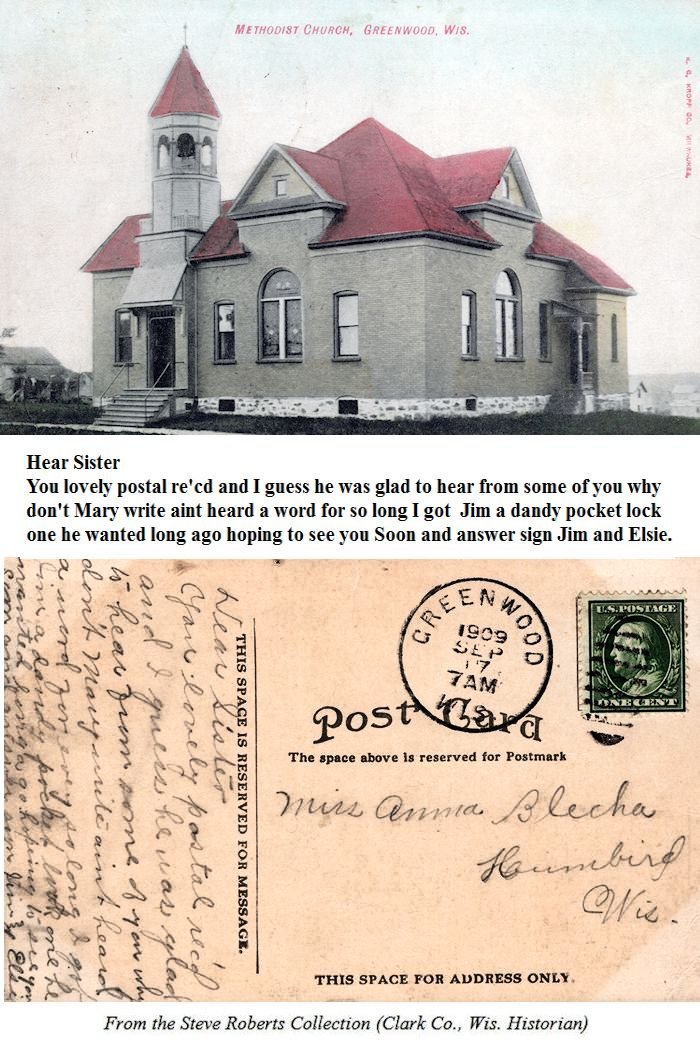 METHODIST CHURCH, GREENWOOD, WIS.
Hear Sister
You lovely postal re'cd and I guess he was glad to hear from some of you why
don't Mary write aint heard a word for so long I got Jim a dandy pocket lock
one he wanted long ago hoping to see you Soon and answer sign Jim and Elsie.
GREENWOOD
1909
SEP
17
7AM
WIS.
U.S. POSTAGE
ONE CENT
Post Card
The space above is reserved for Postmark
Miss Anna Blecha
Humbird
Wis.
THIS SPACE FOR ADDRESS ONLY.
THIS SPACE IS RESERVED FOR MESSAGE.
Dear Sister
You lovely postal rec'd
and I guess he was glad
to hear from some of you why
don't Mary write aint heard
a word for so long I got
Jim a dandy pocket lock one he
wanted long ago hoping to see you
From the Steve Roberts Collection (Clark Co., Wis. Historian)